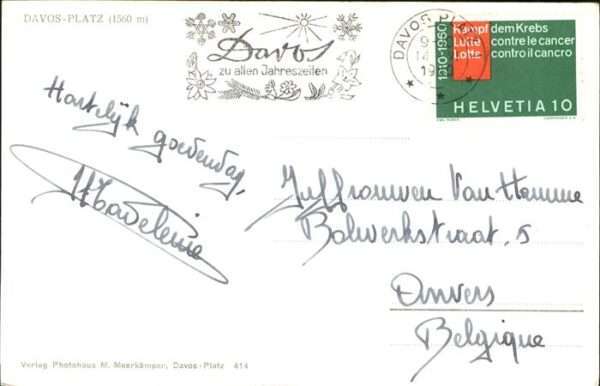 DAVOS-PLATZ (1560 m)
Davos
zu allen Jahreszeiten
DAVOS
1910-1960
Kampf dem Krebs
Lutte contre le cancer
Lotta contro il cancro
HELVETIA 10
Hartelijk goedendag,
Madeleine
Juffrouwen Van Hamme
Bolwerkstraat, 5
Anvers
Belgique
Verlag Photohaus M. Meerkämper, Davos-Platz 414